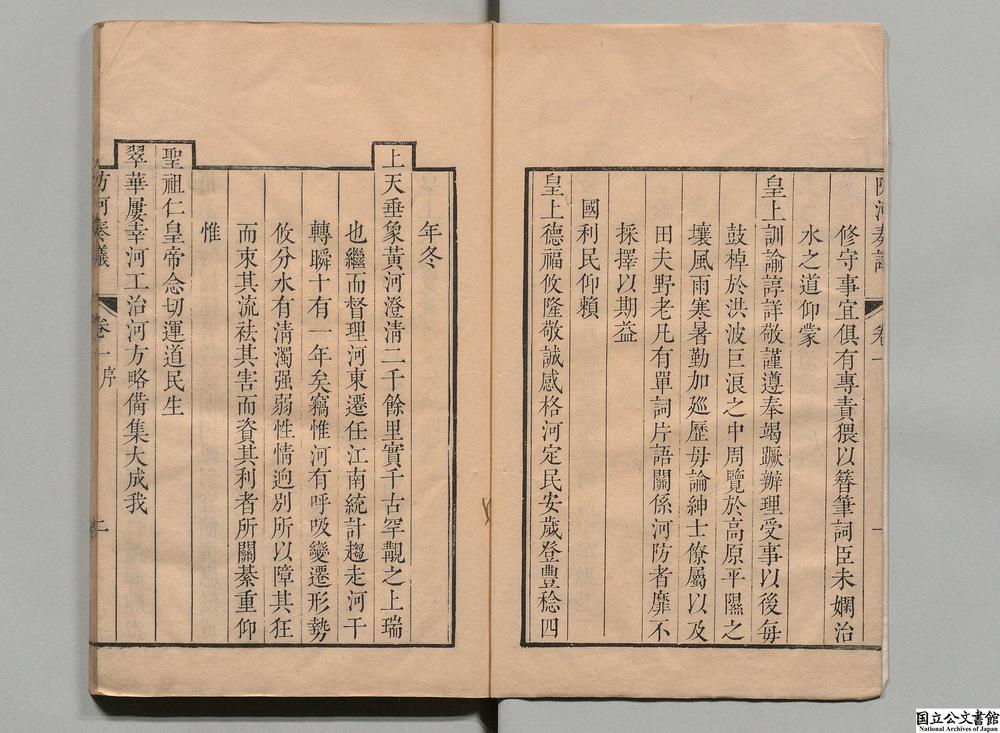 防河奏議 卷一 一
修守事宜俱有專責猥以簪筆詞臣未嫻治
水之道仰蒙
皇上訓諭諄詳敬謹遵奉竭蹶辦理受事以後每
鼓棹於洪波巨浪之中周覽於高原平隰之
壤風雨寒暑勤加廵歷毋論紳士僚屬以及
田夫野老凡有單詞片語關係河防者靡不
採擇以期益
國利民仰賴
皇上德福攸隆敬誠感格河定民安歲登豐稔四
年冬
上天垂象黃河澄清二千餘里實千古罕覯之上瑞
也繼而督理河東遷任江南統計趨走河干
轉瞬十有一年矣竊惟河有呼吸變遷形勢
攸分水有清濁强弱性情逈別所以障其狂
而束其流袪其害而資其利者所關綦重仰
惟
聖祖仁皇帝念切運道民生
翠華屢幸河工治河方略備集大成我
防河奏議 卷一序 二
国立公文書館
National Archives of Japan